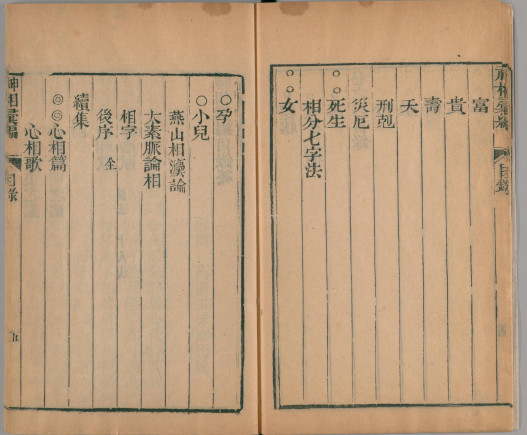 神相彙編
目錄
富
貴
壽
夭
刑剋
災厄
○○死生
相分七字法
○○女
○孕
○小兒
燕山相灋論
太素脈論相
相字
後序 全
續集
◎◎心相篇
心相歌
神相彙編
目錄
五